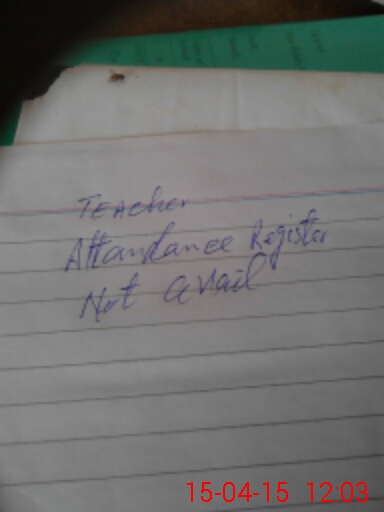 Teacher
Attandance Register
Not avail
15-04-15 12:03